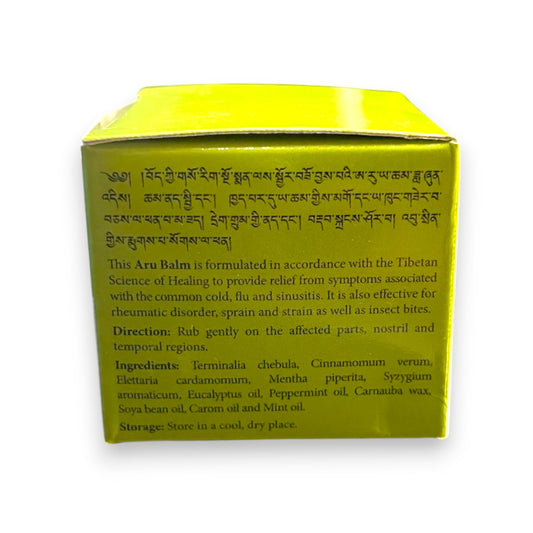 ༄༅། །བོད་ཀྱི་གསོ་རིག་སྔོ་སྨན་ལས་སྦྱོར་བཟོ་བྱས་པའི་ཨ་རུ་ཡ་ཆམ་ཟླ་ཞུན་
འདིས། ཆམ་ནད་སྤྱི་དང་། ཁྱད་པར་དུ་ཡ་ཆམ་གྱིས་མགོ་དང་ཡ་ཁུང་གཟེར་བ་
བཅས་ལ་ཕན་པ་མ་ཟད། དྲེག་གྲུམ་གྱི་ནད་དང་། བརྡབ་སྐྲངས་ཤོར་བ། འབུ་སྲིན་
གྱིས་རྨུགས་པ་སོགས་ལ་ཕན།
This Aru Balm is formulated in accordance with the Tibetan
Science of Healing to provide relief from symptoms associated
with the common cold, flu and sinusitis. It is also effective for
rheumatic disorder, sprain and strain as well as insect bites.
Direction: Rub gently on the affected parts, nostril and
temporal regions.
Ingredients: Terminalia chebula, Cinnamomum verum,
Elettaria cardamomum, Mentha piperita, Syzygium
aromaticum, Eucalyptus oil, Peppermint oil, Carnauba wax,
Soya bean oil, Carom oil and Mint oil.
Storage: Store in a cool, dry place.